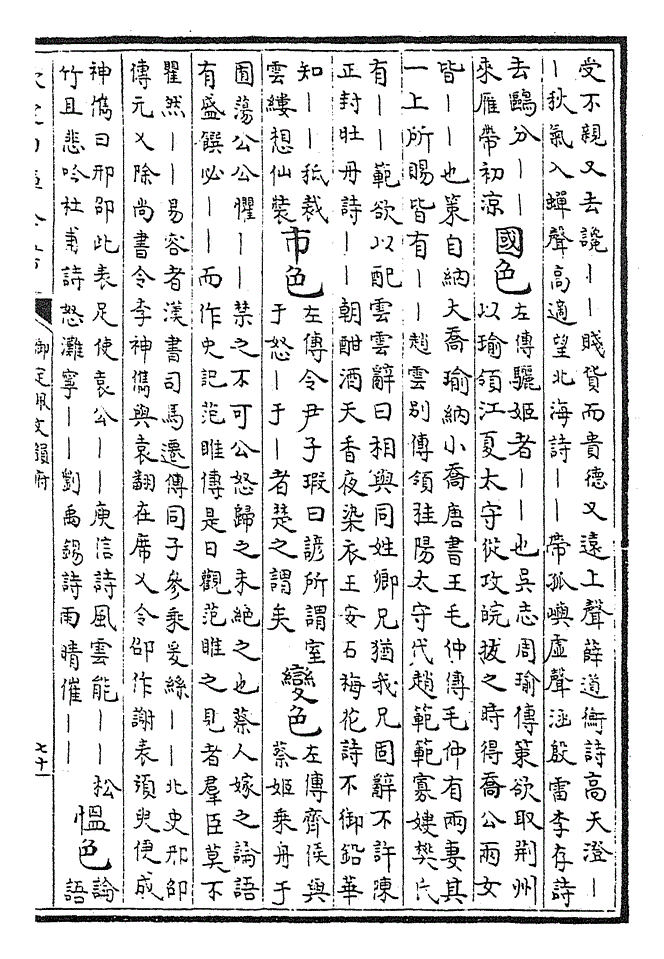 受不親又去讒｜｜賤貨而貴德又遠上聲薛道衡詩高天澄｜
｜秋氣入蟬聲高適望北海詩｜｜帶孤嶼虛聲涵殷雷李存詩
去鷗分｜｜
來雁帶初涼
國色
左傳驪姬者｜｜也吳志周瑜傳策欲取荆州
以瑜領江夏太守從攻皖拔之時得喬公兩女
皆｜｜也策自納大喬瑜納小喬唐書王毛仲傳毛仲有兩妻其
一上所賜皆有｜｜趙雲别傳領桂陽太守代趙範範寡嫂樊氏
有｜｜範欲以配雲雲辭曰相與同姓卿兄猶我兄固辭不許陳
正封牡丹詩｜｜朝酣酒天香夜染衣王安石梅花詩不御鉛華
知｜｜秪裁
雲縷想仙裝
市色
左傳令尹子瑕曰諺所謂室
于怒｜于｜者楚之謂矣
變色
左傳齊侯與
蔡姬乘舟于
囿蕩公公懼｜｜禁之不可公怒歸之未絶之也蔡人嫁之論語
有盛饌必｜｜而作史記范雎傳是日觀范雎之見者羣臣莫不
瞿然｜｜易容者漢書司馬遷傳同子參乘爰絲｜｜北史邢卲
傳元乂除尚書令李神儁與袁翻在席乂令卲作謝表須臾便成
神儁曰邢卲此表足使袁公｜｜庾信詩風雲能｜｜松
竹且悲吟杜甫詩怒灘寧｜｜劉禹錫詩雨晴催｜｜
愠色
論
語
御定佩文韻府
七十一